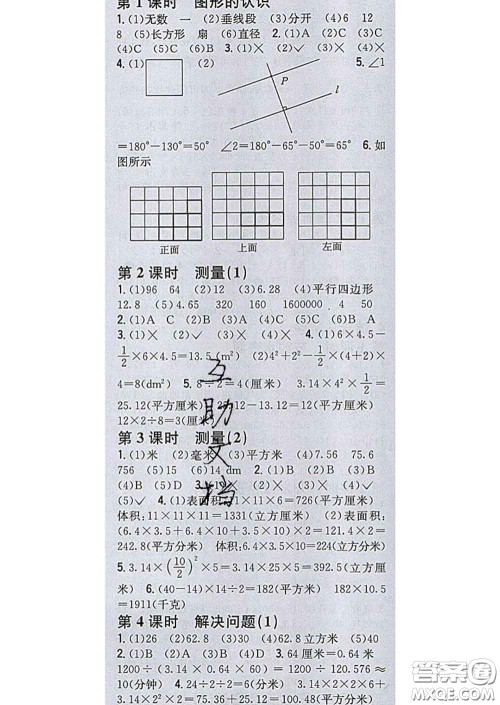 第1课时 图形的认识
1.(1)无数 一 (2)垂线段 (3)分开 (4)6 12
8 (5)长方形 扇 (6)直径 2.(1)A (2)C (3)C
(4)C (5)C 3.(1)× (2)√ (3)× (4)×
4.(1) (2) 5.∠1
P
l
=180°-130°=50° ∠2=180°-65°-50°=65° 6.如
图所示
正面 上面 左面
第2课时 测量(1)
1.(1)96 64 (2)12 (3)6.28 (4)平行四边形
12.8 (5)4.65 320 160 1600000 4 50
2.(1)A C (2)B (3)A (4)C (5)C (6)A
3.(1)× (2)√ (3)× (4)× 4.(1)6×4.5-
1/2×6×4.5=13.5(m²) (2)4²+2²-1/2×(4+2)×
4=8(dm²) 5.8÷2=4(厘米) 3.14×4²×1/2=
25.12(平方厘米) 25.12-13.12=12(平方厘米)
12×2÷8=3(厘米)
第3课时 测量(2)
1.(1)米 (2)毫米 (3)平方米 (4)7.56 75.6
756 (5)15 (6)14 dm 2.(1)B (2)D (3)D
(4)B (5)D 3.(1)× (2)√ (3)× (4)×
(5)√ 4.(1)表面积:11×11×6=726(平方厘米)
体积:11×11×11=1331(立方厘米) (2)表面积:
(6.4×3.5+6.4×10+3.5×10)×2=121.4×2=
242.8(平方分米) 体积:6.4×3.5×10=224(立方分米)
5.3.14×(10/2)²×5=3.14×25×5=392.5(立方厘
米) 6.(40-14÷2)×14=182(平方米) 182×10.5
=1911(千克)
第4课时 解决问题(1)
1.(1)26 (2)62.8 (3)30 (4)62.8立方米 (5)40
2.(1)B (2)A (3)D 3.64厘米=0.64米
1200÷(3.14×0.64×60)=1200÷120.576≈
10(分钟) 4.24÷2÷2=6(分米) 3.14×2×2×6+
3.14×2²×2=75.36+25.12=100.48(平方分米)
互助文档
答案圈
MXQE.COM